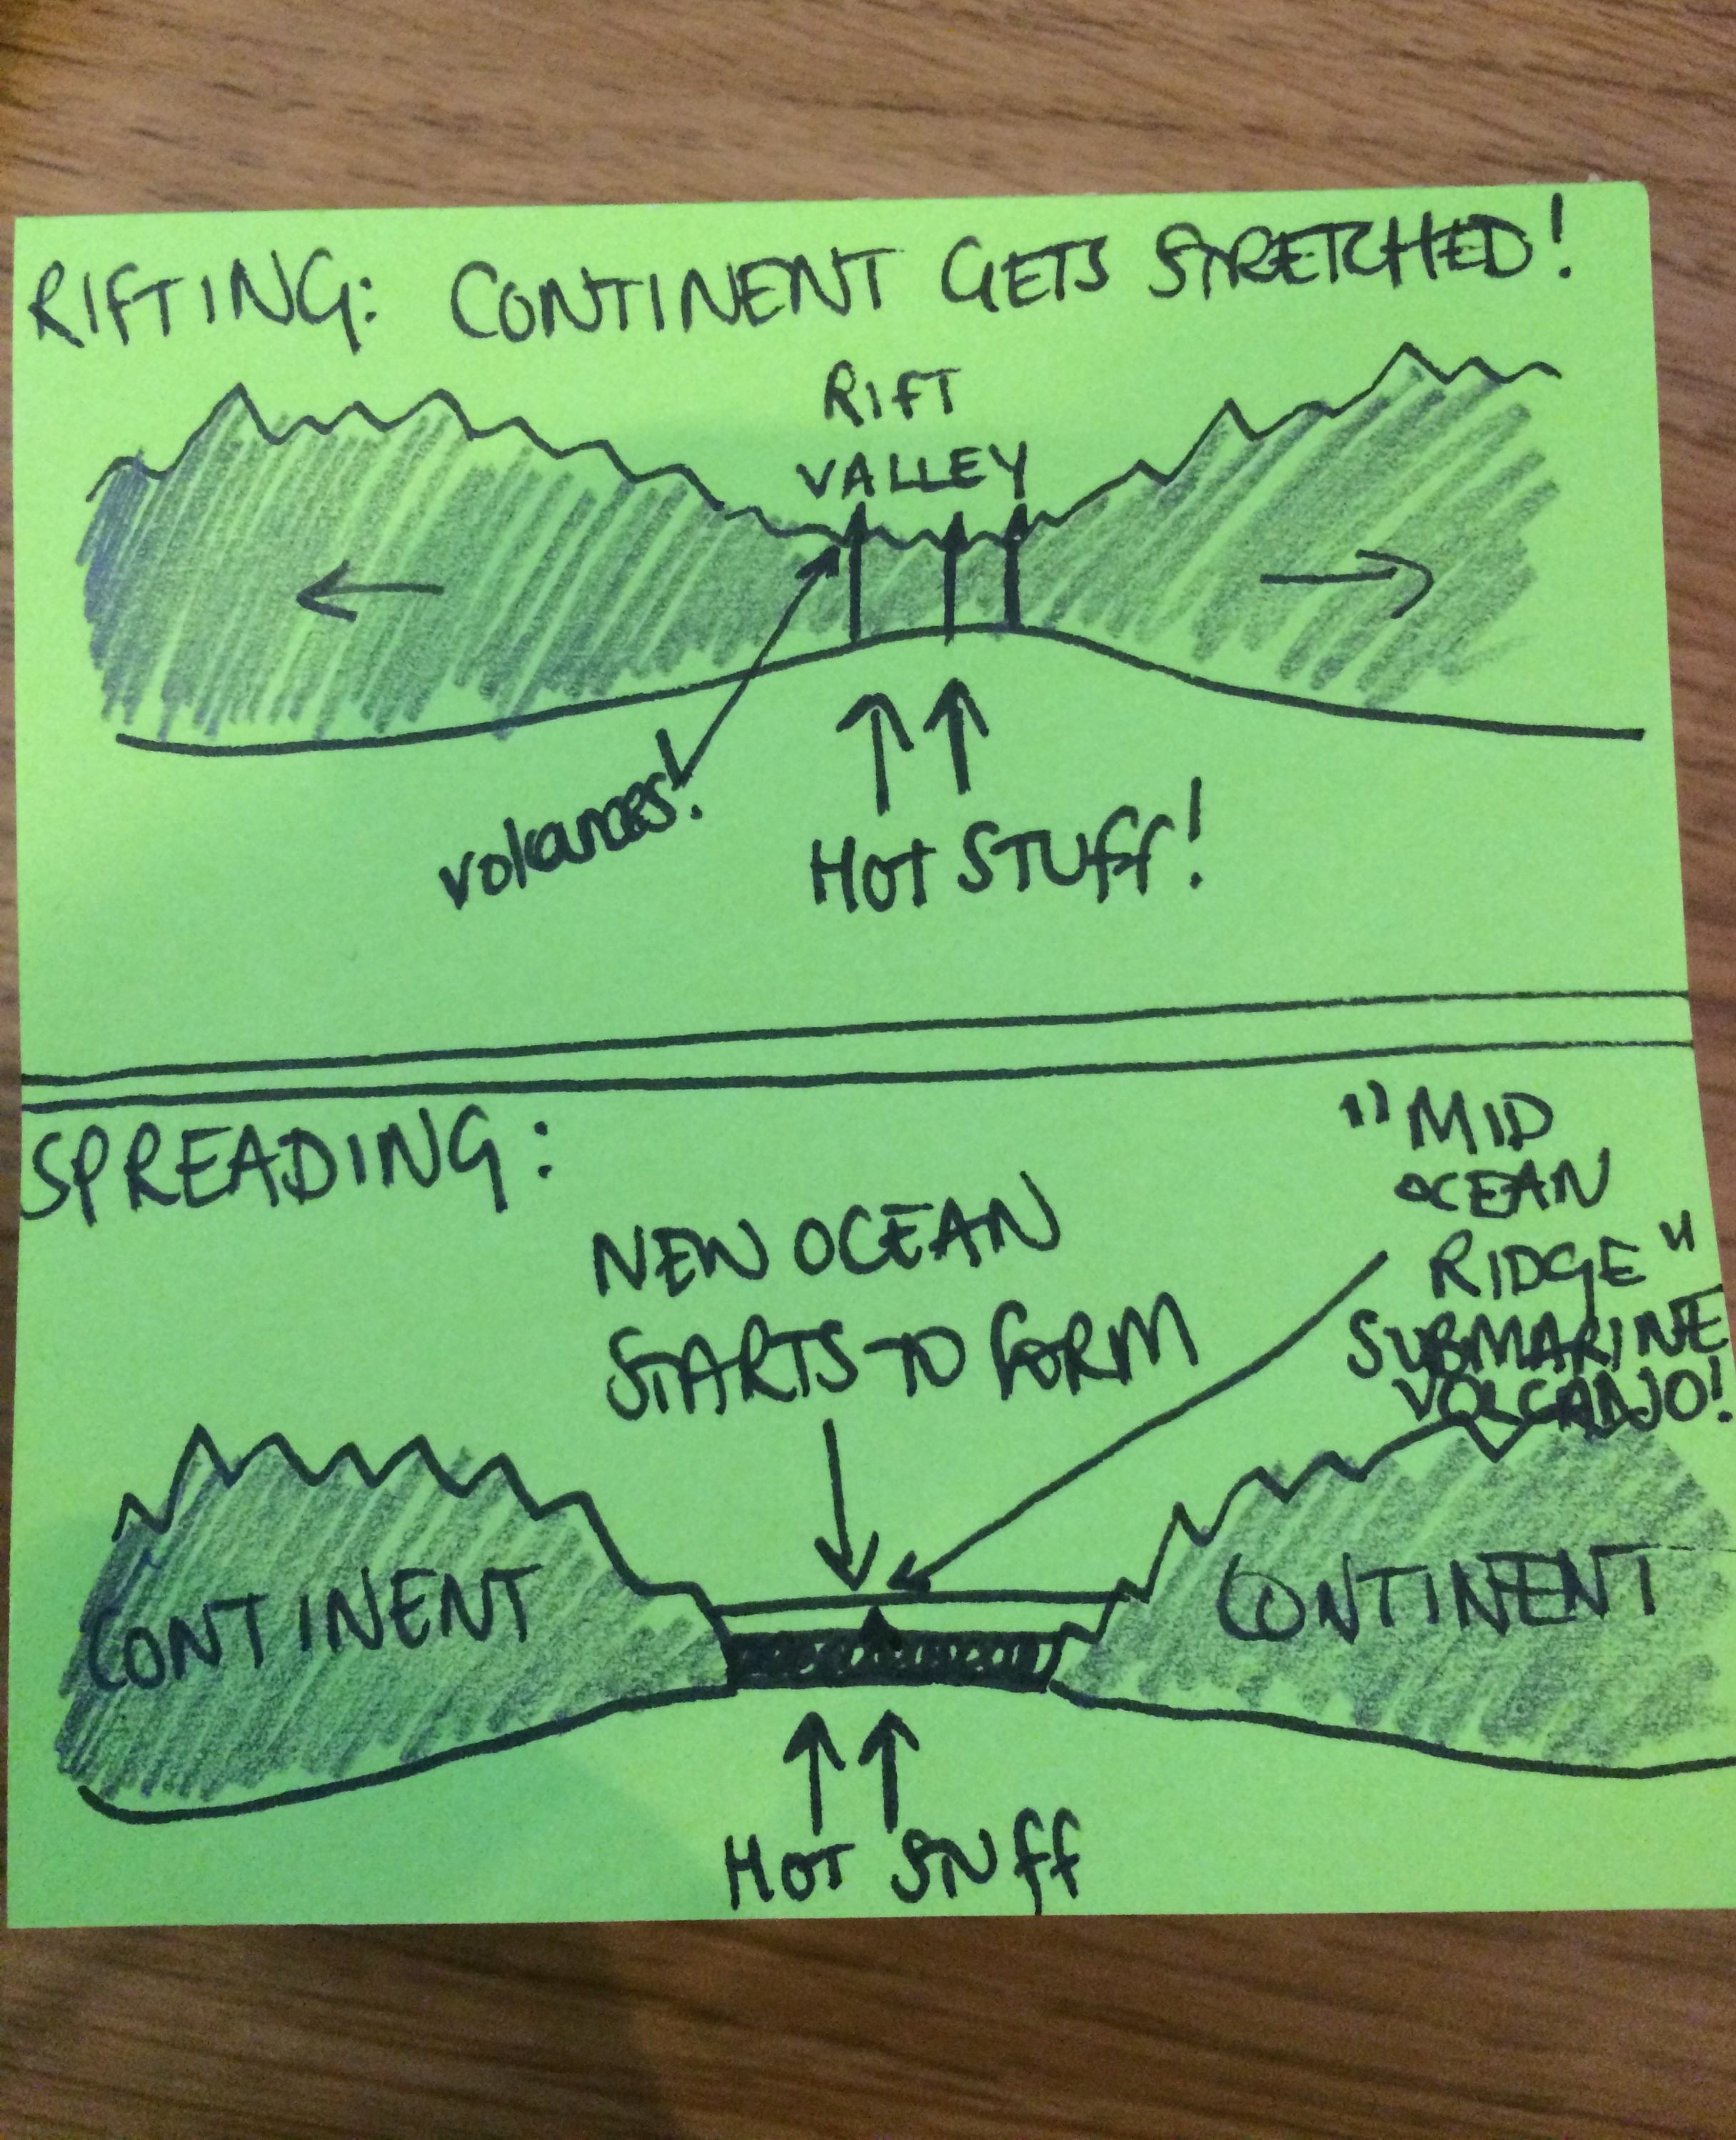 RIFTING: CONTINENT GETS STRETCHED!
RIFT
VALLEY
volcanoes!
HOT STUFF!
SPREADING:
NEW OCEAN
STARTS TO FORM
"MID
OCEAN
RIDGE"
SUBMARINE
VOLCANO!
CONTINENT
CONTINENT
HOT STUFF